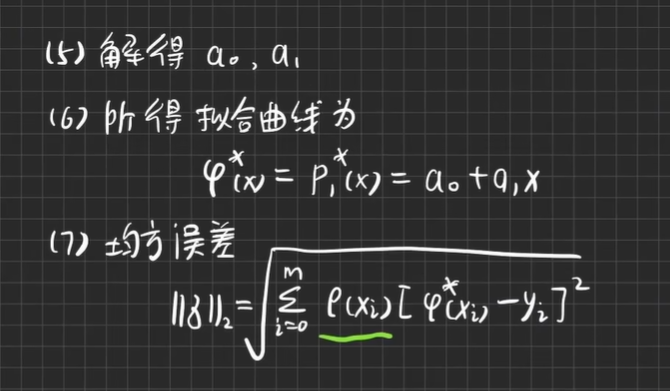 (5) 解得 a₀, a₁
(6) 所得拟合曲线为
φ*(x) = P₁*(x) = a₀ + a₁x
(7) 均方误差
||δ||₂ = √(∑_{i=0}^{m} ρ(xᵢ)[φ*(xᵢ) - yᵢ]²)